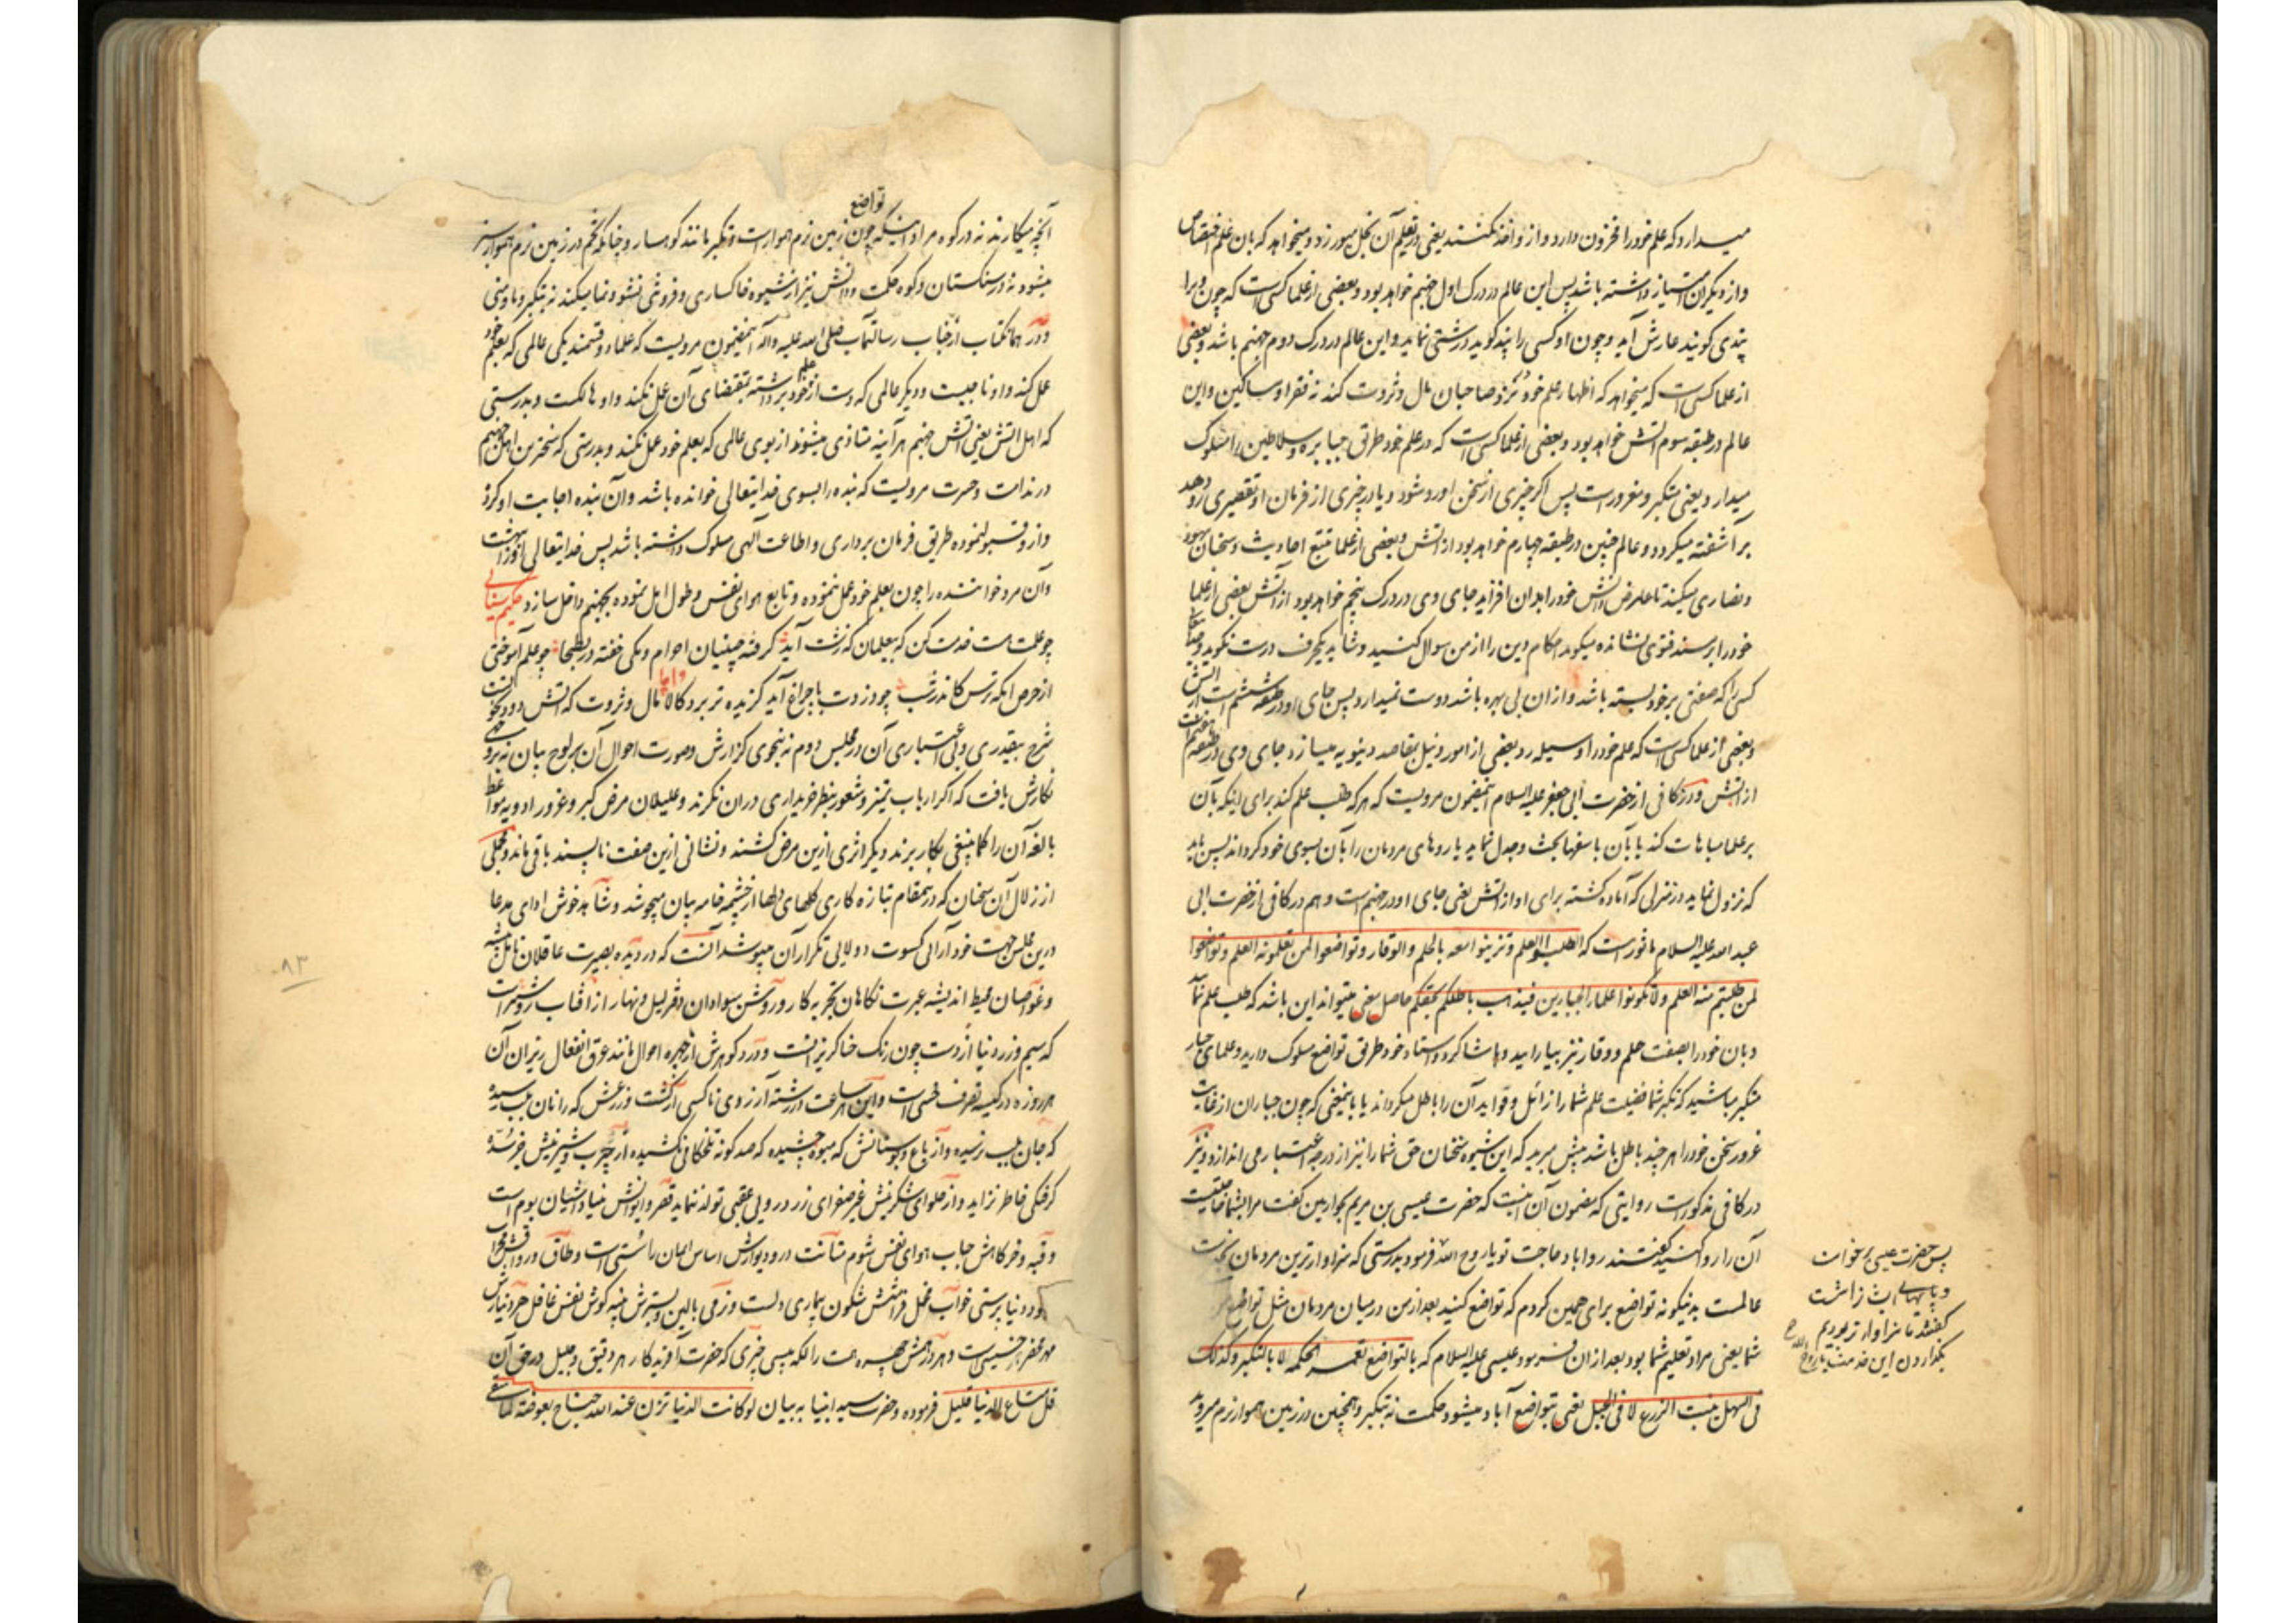 میدارد که علم خود را مخزون دارد و از او اخذ نکنند یعنی در تعلیم آن بخل میورزد و میخواهد که بآن علم اختصاص
و از دیگران امتیاز داشته باشد پس این عالم در درک اول جهنم خواهد بود و بعضی از علما کسی است که چون ویرا
پندی گویند عارش آید و چون او کسی را پند گوید درشتی نماید و این عالم در درک دوم جهنم باشد و بعضی
از علما کسی است که میخواهد که اظهار علم خود نزد صاحبان مال و ثروت کند نه فقرا و مساکین و این
عالم در طبقه سوم آتش خواهد بود و بعضی از علما کسی است که در علم خود طریق جبابره و سلاطین را مسلوک
میدارد یعنی متکبر و مغرور است پس اگر چیزی از سخن او رد شود و یا در چیزی از فرمان او تقصیری رو دهد
بر آشفته میگردد و عالم چنین در طبقه چهارم خواهد بود از آتش و بعضی از علما تتبع احادیث و سخنان یهود
و نصاری میکند تا علم دانش خود را بدان افزاید جای وی در درک پنجم خواهد بود از آتش بعضی از علما
خود را بر مسند فتوی نشانده میگوید احکام دین را از من سوال کنید و شاید یکحرف درست نگوید و خدایتعالی
کسی را که صفتی بر خود بسته باشد و از ان بی بهره باشد دوست نمیدارد پس جای او در طبقه ششم است از آتش
و بعضی از علما کسی است که علم خود را وسیله رد بعضی از امور و نیل مقاصد دنیویه میسازد جای وی در طبقه هفتم است
از آتش و در کافی از حضرت ابی جعفر علیه السلام اینمضمون مرویست که هر که طلب علم کند برای اینکه بآن
بر علما مباهات کند یا بآن با سفها بحث و جدل نماید یا روهای مردمان را بآن بسوی خود گرداند پس باید
که نزول نماید در منزلی که آماده گشته برای او از آتش یعنی جای او در جهنم است و هم در کافی از حضرت ابی
عبد الله علیه السلام ماثور است که اطلبوا العلم و تزینوا معه بالحلم و الوقار و تواضعوا لمن تعلمونه العلم و تواضعوا
لمن طلبتم منه العلم و لا تکونوا علماء الجبارین فیذهب باطلکم بحقکم حاصل معنی میتواند این باشد که طلب علم نمایید
و بآن خود را بصفت حلم و وقار نیز بیارایید و با شاگرد و استاد خود طریق تواضع مسلوک دارید و علمای جبار
متکبر مباشید که تکبر شما فضیلت علم شما را زائل و فواید آن را باطل میگرداند یا باینمعنی که چون جباران از غایت
غرور سخن خود را هر چند باطل باشد پیش میبرید که این شیوه سخنان حق شما را نیز از درجه اعتبار می اندازد و نیز
در کافی مذکور است روایتی که مضمون آن اینست که حضرت عیسی بن مریم بحواریین گفت مرا بشما حاجتیست
آن را روا کنید گفتند روا باد حاجت تو یا روح الله فرمود بدرستی که سزاوارترین مردمان بخدمت
عالمست بدینگونه تواضع برای همین کردم که تواضع کنید بعد از من در میان مردمان مثل تواضع من
شما یعنی مراد تعلیم شما بود بعد از ان فرمود عیسی علیه السلام که بالتواضع تعمر الحکمه لا بالتکبر و کذلک
فی السهل ینبت الزرع لا فی الجبل یعنی بتواضع آباد میشود حکمت نه بتکبر و همچنین در زمین هموار نرم میروید
پس حضرت عیسی برخواست
و پاهای ایشان را شست
گفتند ما سزاوارتر بودیم
بگذاردن این خدمت یا روح الله
تواضع
آنچه میکارند نه در کوه مراد اینکه چون زمین نرم هموار است و تکبر مانند کوهسار و چنانکه تخم در زمین نرم هموار سبز
میشود نه در سنگستان و کوه حکمت و دانش نیز از شیوه خاکساری و فروتنی نشو و نما میکند نه بتکبر و ما و منی
و در همانکتاب از جناب رسالتماب صلی الله علیه و آله اینمضمون مرویست که علماء دو قسمند یکی عالمی که بعلم خود
عمل کند و او ناجیست و دیگر عالمی که دست از علم خود برداشته بمقتضای آن عمل نکند و او هالکست و بدرستی
که اهل آتش یعنی آتش جهنم هر آینه متاذی میشوند از بوی عالمی که بعلم خود عمل نکند و بدرستی که سخت‌ترین اهل جهنم
در ندامت و حسرت مردیست که بنده را بسوی خدایتعالی خوانده باشد و آن بنده اجابت او کرده
و از و قبول نموده طریق فرمان برداری و اطاعت الهی مسلوک داشته باشد پس خدایتعالی او را ببهشت
و آن مرد خواننده را چون بعلم خود عمل ننموده و تابع هوای نفس و طول امل نموده بجهنم داخل سازد حکیم سنایی
چو علمت هست خدمت کن که بیعلمان که زشت آید گرفته چینیان احرام و مکی خفته در بطحا چو علم آموختی
از حرص آنگه ترس کاندر شب چو دزدی با چراغ آید گزیده تر برد کالا و اما مال و ثروت که آتش دود نخوت است
شرح بیقدری و بی اعتباری آن در مجلس دوم نه بنحوی گزارش و صورت احوال آن بر لوح بیان نه بروجهی
نگارش یافت که اگر ارباب تمیز و شعور بنظر خریداری در ان نگرند و علیلان مرض کبر و غرور ادویه مواعظ
بالغه آن را کما ینبغی بکار برند دیگر اثری از این مرض کشنده و نشانی ازین صفت ناپسند باقی ماند و مجملی
از زلال آن سخنان که در اینمقام بتازه کاری گلهای دلها از چشمه خامه بیان میجوشد و شاهد خوش ادای مدعا
درین مجلس جهت خود آرائی کسوت دولایی تکرار آن میپوشد آنست که در دیده بصیرت عاقلان تامل پیشه
و غواصان محیط اندیشه عبرت نگاهان تجربه کار و روشن سوادان دفتر لیل و نهار از آفتاب روشنتر است
که سیم و زر دنیا از دست چون رنگ حنا گریزانست و در و گوهرش از چهره احوال مانند عرق انفعال ریزان آن
هر روزه در کیسه تصرف خسی است و این هر ساعت در رشته آرزوی ناکسی از کشت و زرعش که را نان بلب رسیده
که جان بلب نرسیده و از باغ و بوستانش که میوه چشیده که صد گونه تلخکامی نکشیده از چرب و شیرینش جز سده
گرفتگی خاطر نزاید و از حلوای شکرینش غیر صفرای زرد رویی عقبی تولد ننماید قصر و ایوانش بنیاد آشیان بوم است
و قبه و خرگاهش حباب هوای نفس شوم متانت در و دیوارش اساس ایمان را سستی است و طاق و رواقش محراب
خود دنیا پرستی خواب مخمل فراشش شگون بیماری دلست و نرمی بالین و بسترش پنبه گوش نفس غافل
فرموده و حضرت سید انبیا به بیان لو کانت الدنیا تزن عند الله جناح بعوضة لما سقی
قل متاع الدنیا قلیل
۸۳